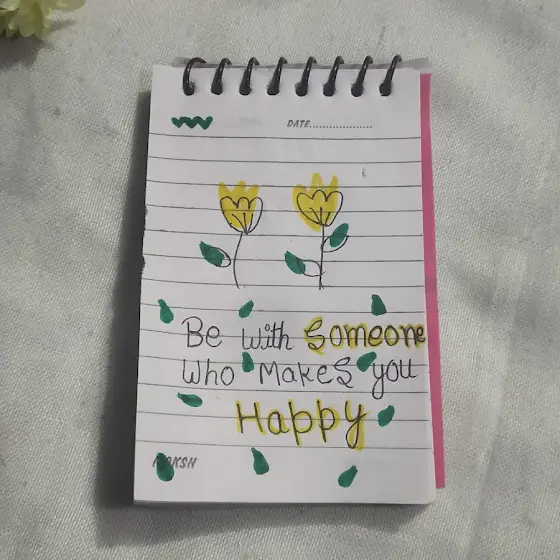 DATE....................
Be with Someone
Who Makes you
Happy